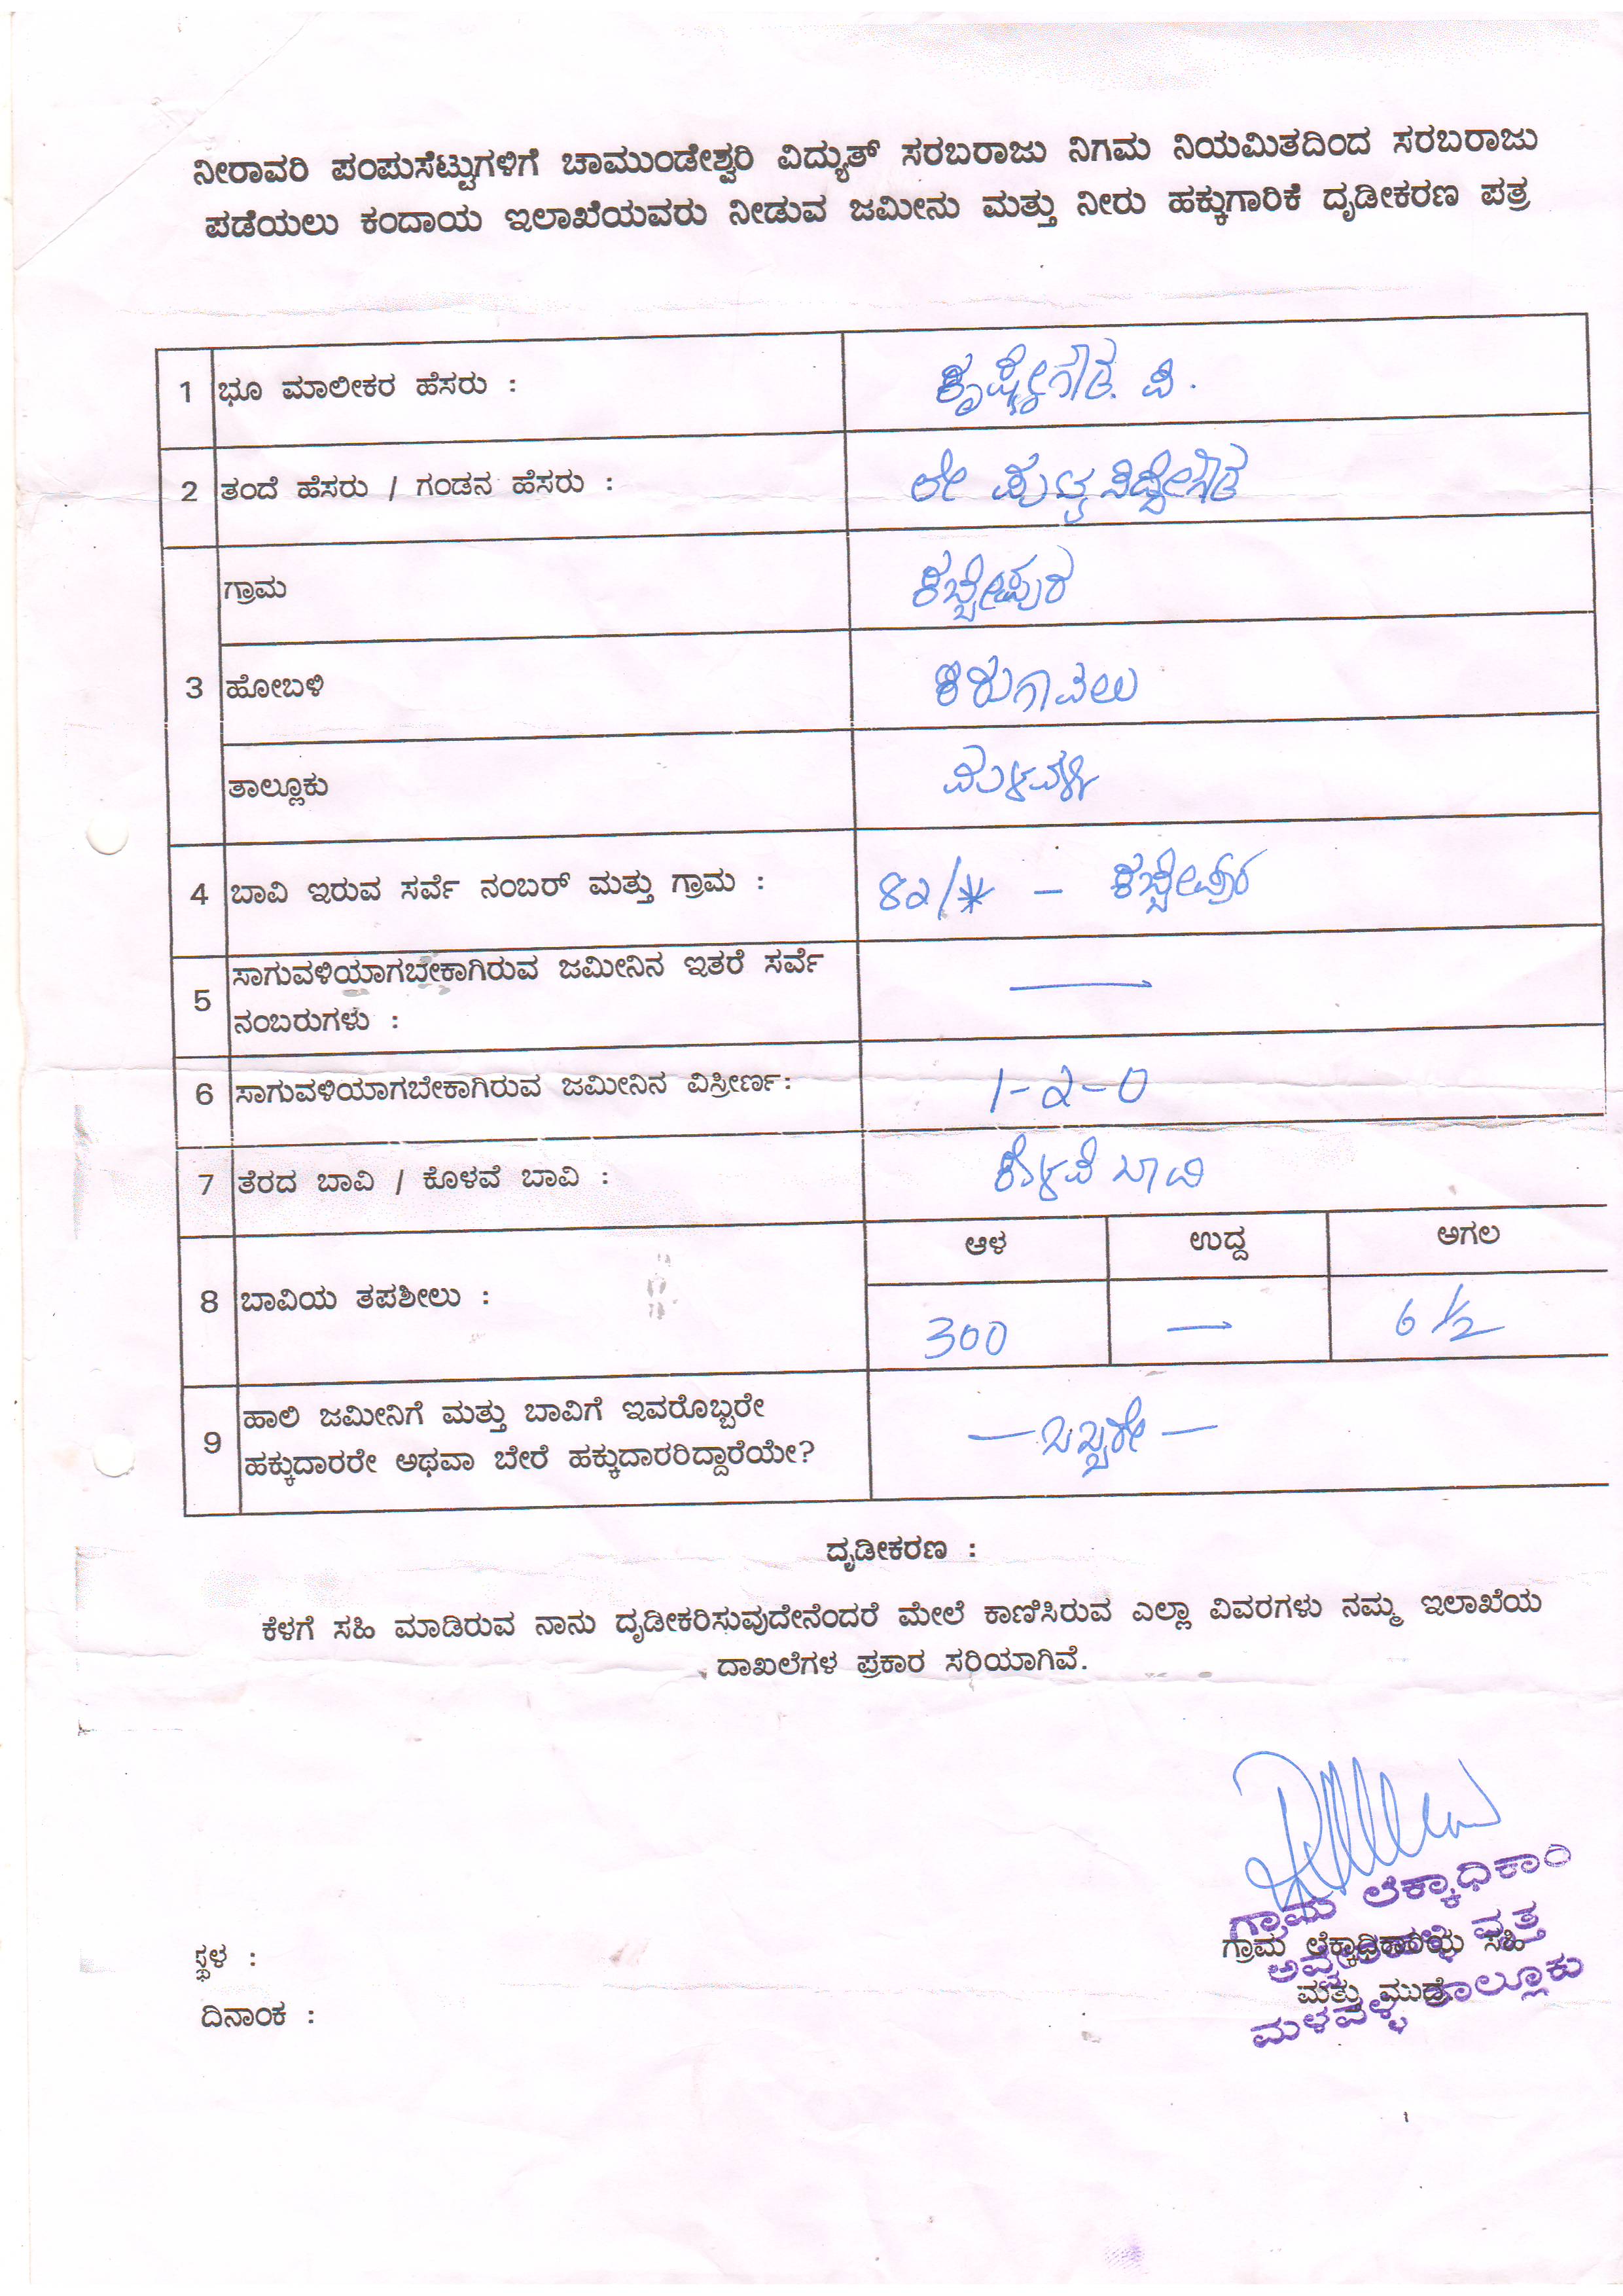 ನೀರಾವರಿ ಪಂಪುಸೆಟ್ಟುಗಳಿಗೆ ಚಾಮುಂಡೇಶ್ವರಿ ವಿದ್ಯುತ್ ಸರಬರಾಜು ನಿಗಮ ನಿಯಮಿತದಿಂದ ಸರಬರಾಜು
ಪಡೆಯಲು ಕಂದಾಯ ಇಲಾಖೆಯವರು ನೀಡುವ ಜಮೀನು ಮತ್ತು ನೀರು ಹಕ್ಕುಗಾರಿಕೆ ದೃಡೀಕರಣ ಪತ್ರ
1 ಭೂ ಮಾಲೀಕರ ಹೆಸರು : ಕೃಷ್ಣೇಗೌಡ. ಪಿ.
2 ತಂದೆ ಹೆಸರು / ಗಂಡನ ಹೆಸರು : ಲೇ ಪುಟ್ಟಸಿದ್ದೇಗೌಡ
ಗ್ರಾಮ ಕಬ್ಬೇಪುರ
3 ಹೋಬಳಿ ಕಿರುಗಾವಲು
ತಾಲ್ಲೂಕು ಮಳವಳ್ಳಿ
4 ಬಾವಿ ಇರುವ ಸರ್ವೆ ನಂಬರ್ ಮತ್ತು ಗ್ರಾಮ : 82/* – ಕಬ್ಬೇಪುರ
5 ಸಾಗುವಳಿಯಾಗಬೇಕಾಗಿರುವ ಜಮೀನಿನ ಇತರೆ ಸರ್ವೆ
ನಂಬರುಗಳು : —
6 ಸಾಗುವಳಿಯಾಗಬೇಕಾಗಿರುವ ಜಮೀನಿನ ವಿಸ್ತೀರ್ಣ: 1-2-0
7 ತೆರದ ಬಾವಿ / ಕೊಳವೆ ಬಾವಿ : ಕೊಳವೆ ಬಾವಿ
ಆಳ ಉದ್ದ ಅಗಲ
8 ಬಾವಿಯ ತಪಶೀಲು : 300 — 6 1/2
9 ಹಾಲಿ ಜಮೀನಿಗೆ ಮತ್ತು ಬಾವಿಗೆ ಇವರೊಬ್ಬರೇ
ಹಕ್ಕುದಾರರೇ ಅಥವಾ ಬೇರೆ ಹಕ್ಕುದಾರರಿದ್ದಾರೆಯೇ? — ಒಬ್ಬರೇ —
ದೃಡೀಕರಣ :
ಕೆಳಗೆ ಸಹಿ ಮಾಡಿರುವ ನಾನು ದೃಡೀಕರಿಸುವುದೇನೆಂದರೆ ಮೇಲೆ ಕಾಣಿಸಿರುವ ಎಲ್ಲಾ ವಿವರಗಳು ನಮ್ಮ ಇಲಾಖೆಯ
ದಾಖಲೆಗಳ ಪ್ರಕಾರ ಸರಿಯಾಗಿವೆ.
ಗ್ರಾಮ ಲೆಕ್ಕಾಧಿಕಾರಿ
ವೃತ್ತ
ಮಳವಳ್ಳಿ ತಾಲ್ಲೂಕು
ಸ್ಥಳ : ಗ್ರಾಮ ಲೆಕ್ಕಾಧಿಕಾರಿಯ ಸಹಿ
ದಿನಾಂಕ : ಮತ್ತು ಮುದ್ರೆ